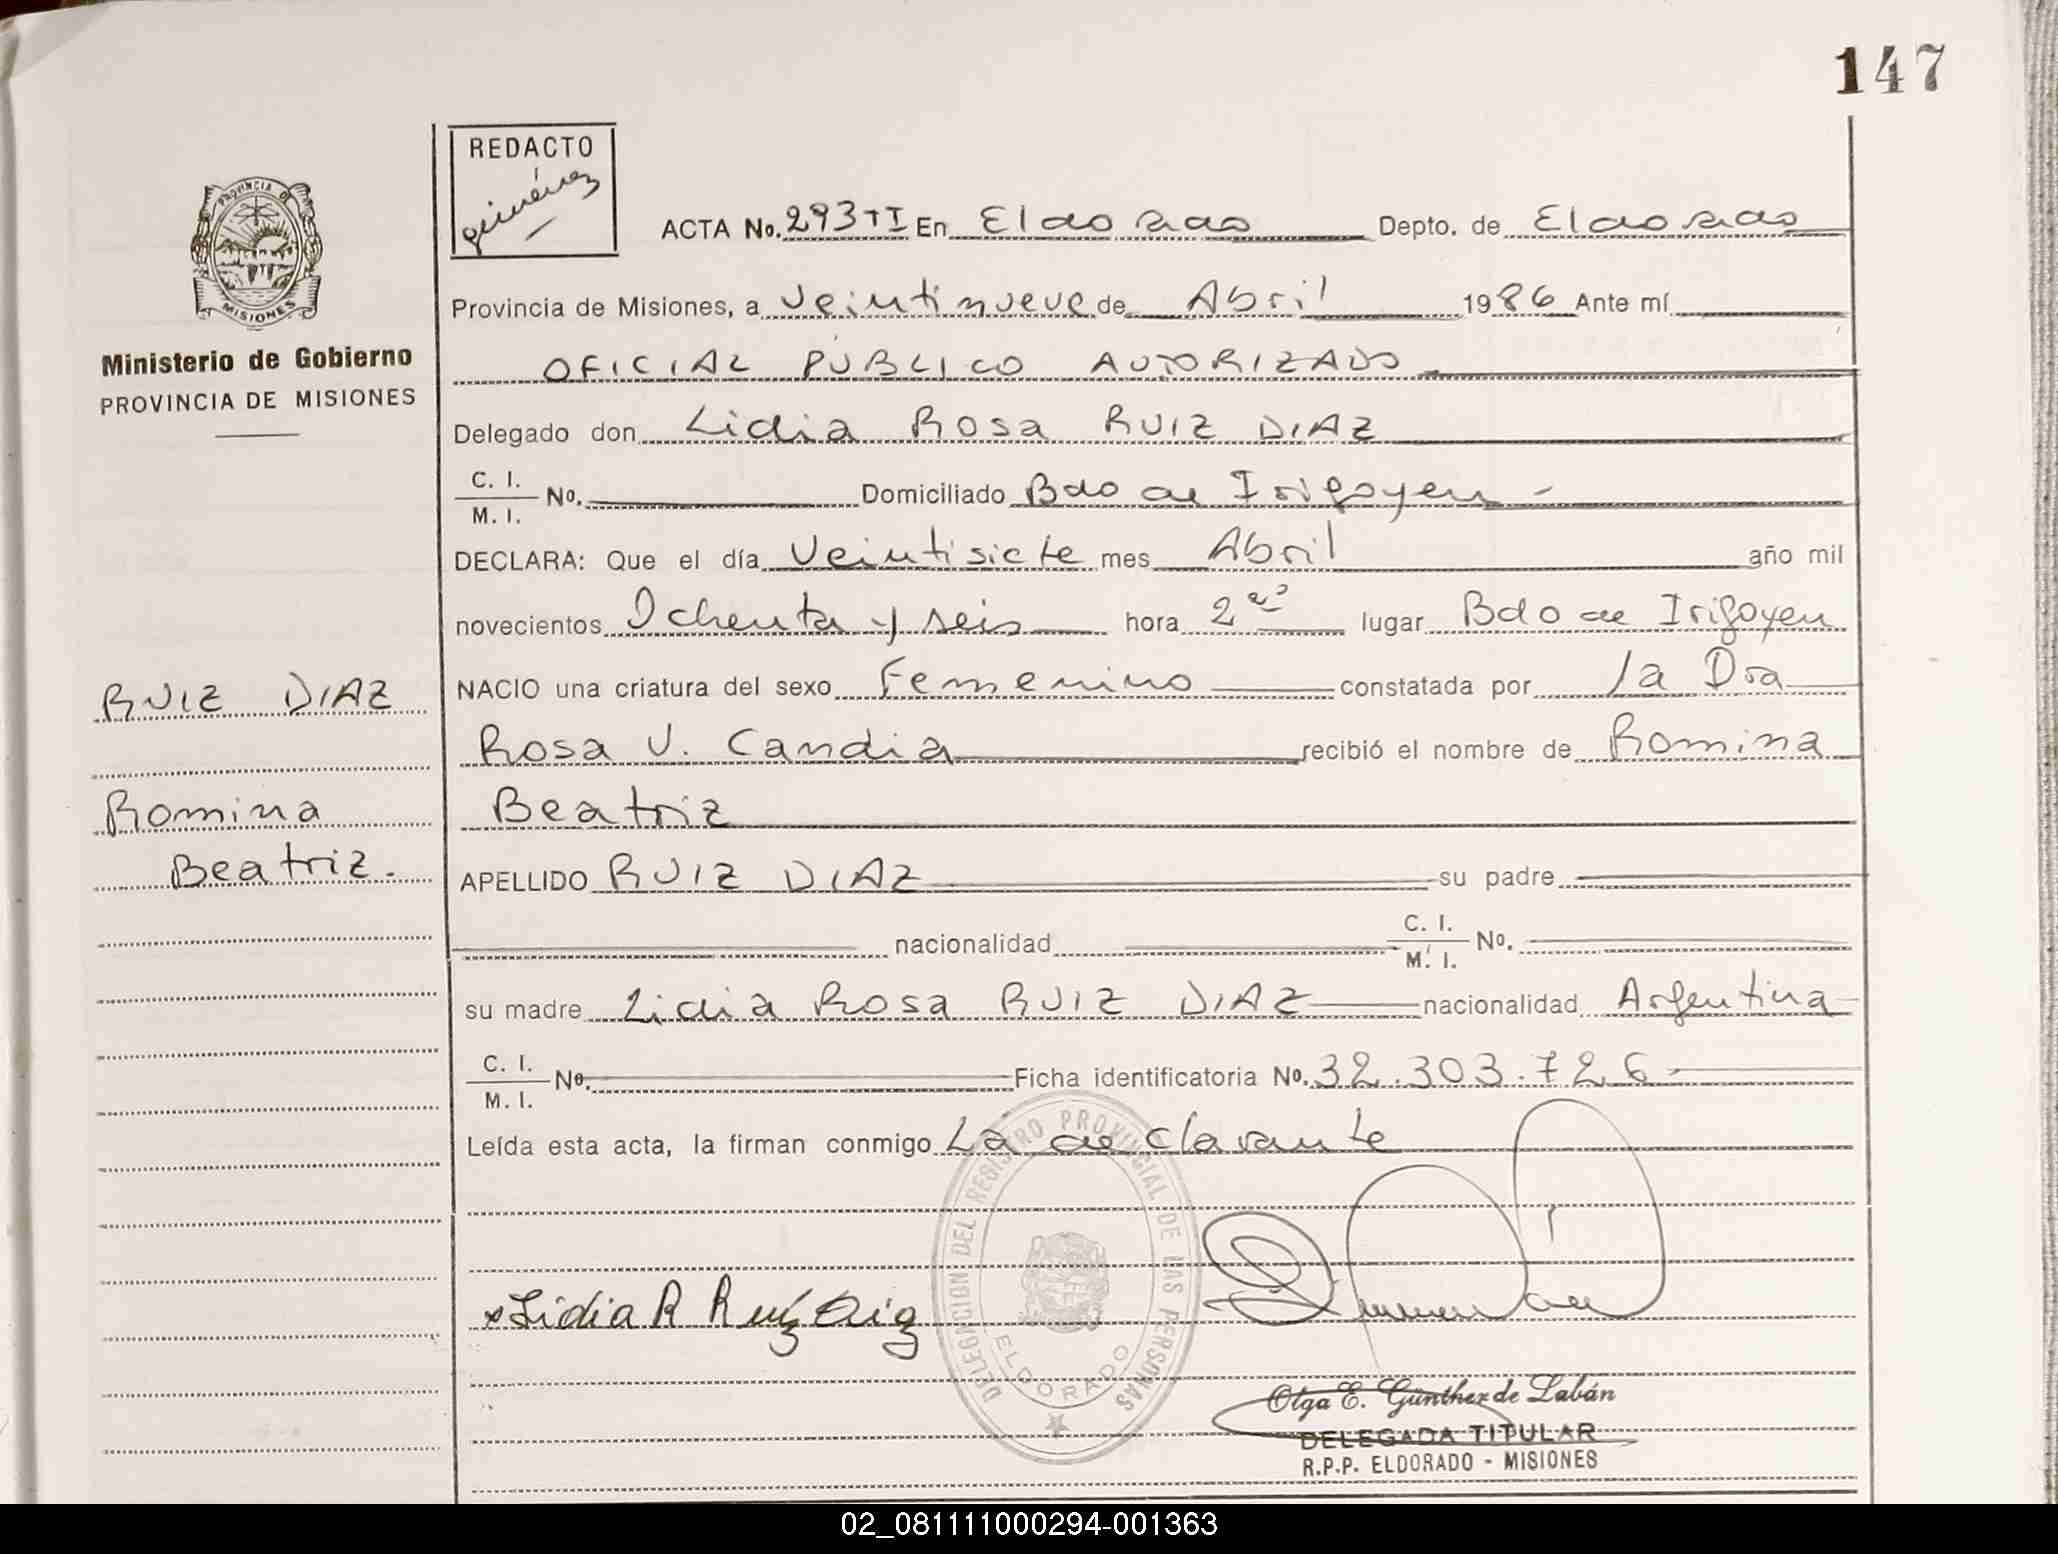 147
REDACTO
giménez
PROVINCIA DE
MISIONES
Ministerio de Gobierno
PROVINCIA DE MISIONES
ACTA No. 293 TI En Eldorado Depto. de Eldorado
Provincia de Misiones, a Veintinueve de Abril 1986 Ante mí
OFICIAL PUBLICO AUTORIZADO
Delegado don Lidia Rosa RUIZ DIAZ
C. I.
M. I. No. Domiciliado Bdo de Irigoyen -
DECLARA: Que el día Veintisiete mes Abril año mil
novecientos Ochenta y seis hora 2 lugar Bdo de Irigoyen
NACIO una criatura del sexo Femenino constatada por la Dra
Rosa V. Candia recibió el nombre de Romina
Beatriz
APELLIDO RUIZ DIAZ su padre
nacionalidad C. I.
M. I. No.
su madre Lidia Rosa RUIZ DIAZ nacionalidad Argentina
C. I.
M. I. No. Ficha identificatoria No. 32.303.726-
Leída esta acta, la firman conmigo La declarante
RUIZ DIAZ
Romina
Beatriz.
x Lidia R Ruiz Diaz
DELEGACION DEL REGISTRO PROVINCIAL DE LAS PERSONAS
ELDORADO
Olga E. Günther de Labán
DELEGADA TITULAR
R.P.P. ELDORADO - MISIONES
02_081111000294-001363